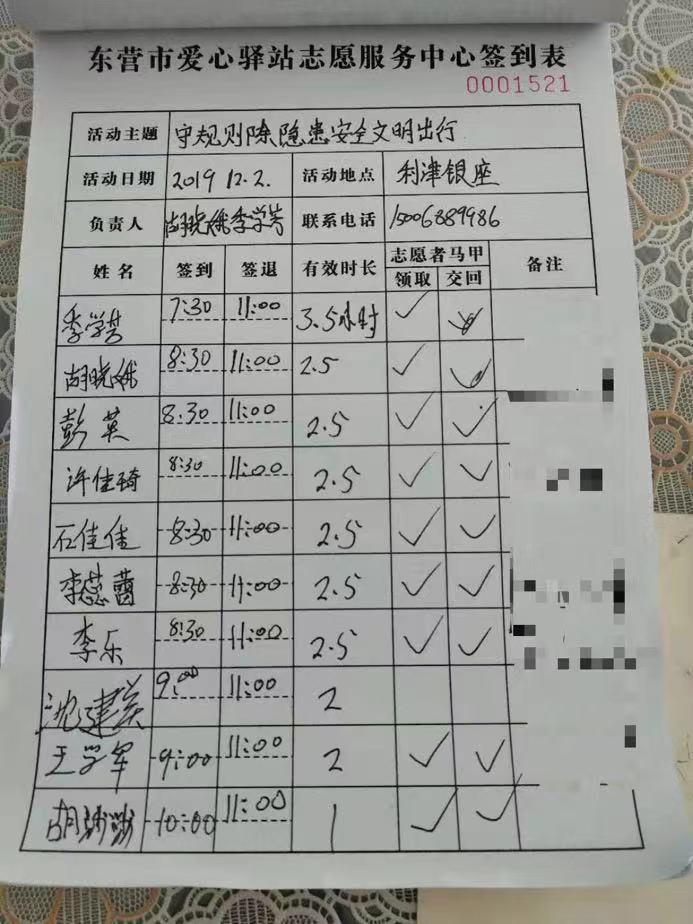 东营市爱心驿站志愿服务中心签到表
0001521
活动主题 守规则除隐患安全文明出行
活动日期 2019 12.2. 活动地点 利津银座
负责人 胡晓娥季学芳 联系电话 15006889986
姓名 签到 签退 有效时长 志愿者马甲 备注
领取 交回
季学芳 7:30 11:00 3.5小时 ✓ ✓
胡晓娥 8:30 11:00 2.5 ✓ ✓
彭英 8:30 11:00 2.5 ✓ ✓
许佳琦 8:30 11:00 2.5 ✓ ✓
石佳佳 8:30 11:00 2.5 ✓ ✓
李蕊蕾 8:30 11:00 2.5 ✓ ✓
李乐 8:30 11:00 2.5 ✓ ✓
沈建英 9:00 11:00 2
王学军 9:00 11:00 2 ✓ ✓
胡 10:00 11:00 1 ✓ ✓